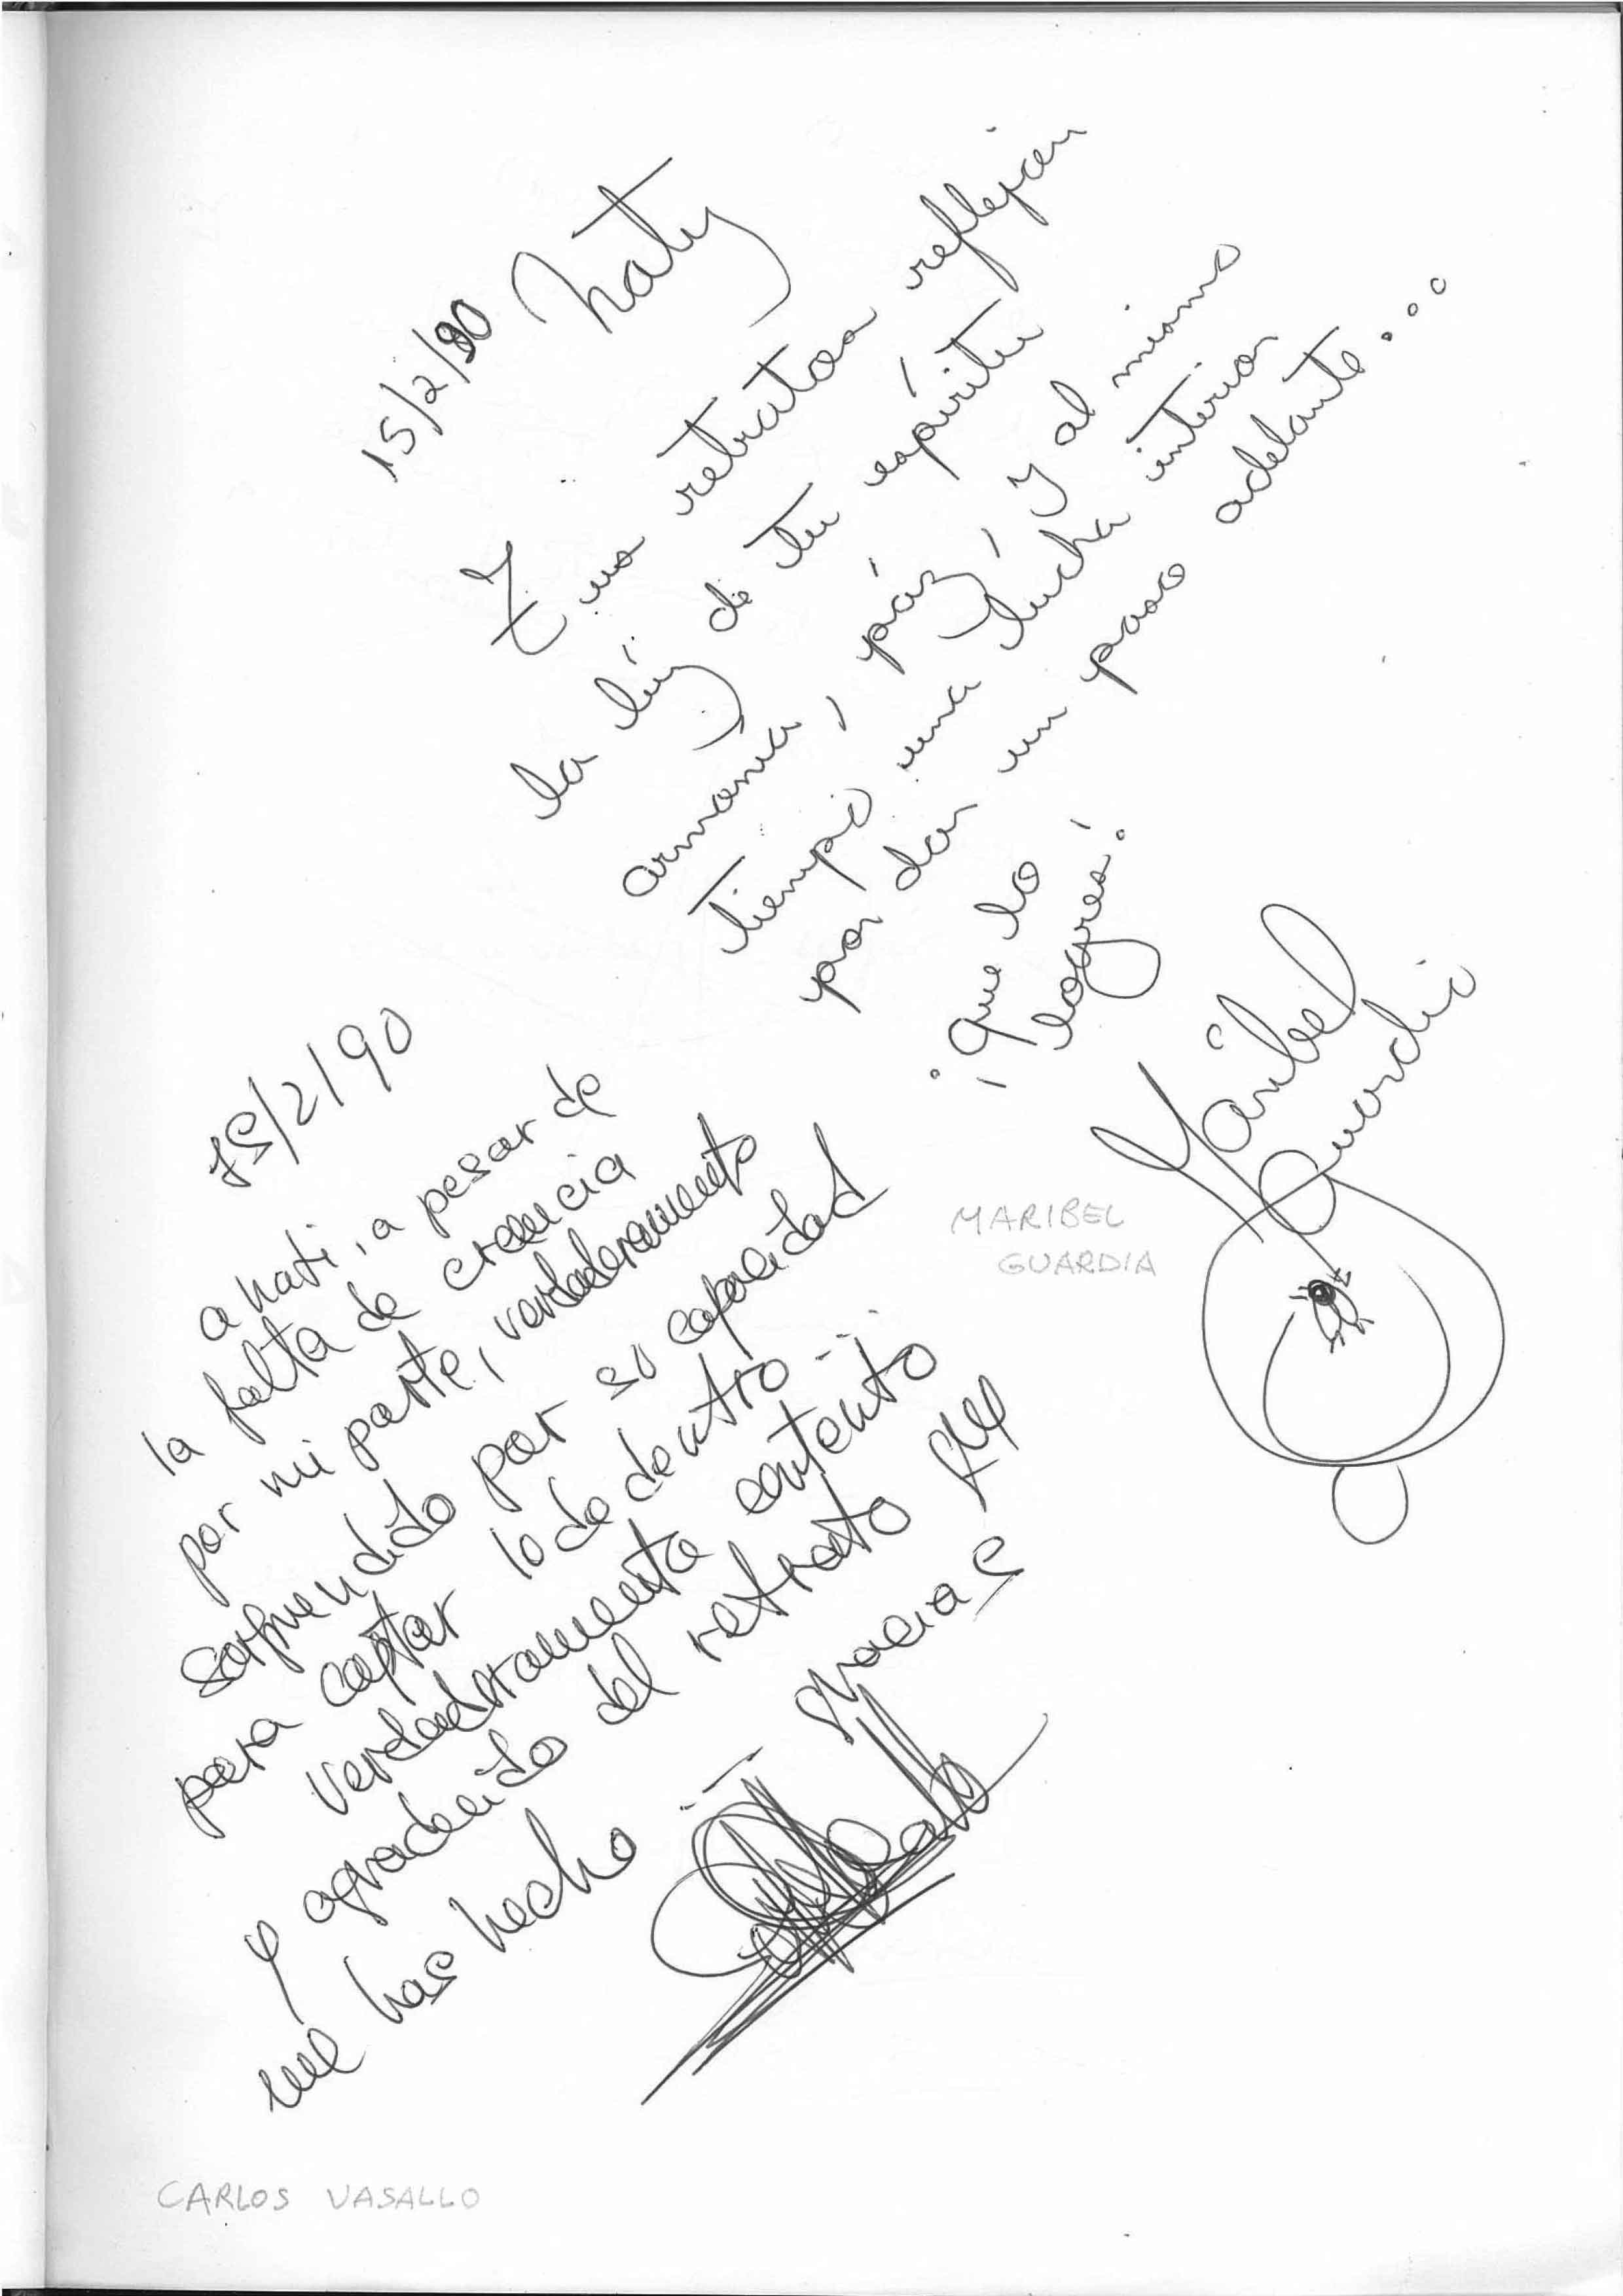 15/2/90
Naty
Tus retratos reflejan
la lúz de tu espíritu
armonía, páz, y al mismo
tiempo una lucha interior
por dar un paso adelante...
¡Que lo
logres!
Maribel
Guardia
MARIBEL
GUARDIA
15/2/90
a nati, a pesar de
la falta de creencia
por mi parte, verdaderamente
sorprendido por su capacidad
para captar lo de dentro...
Verdaderamente contento
y agradecido del retrato que
me has hecho
gracias
CARLOS VASALLO